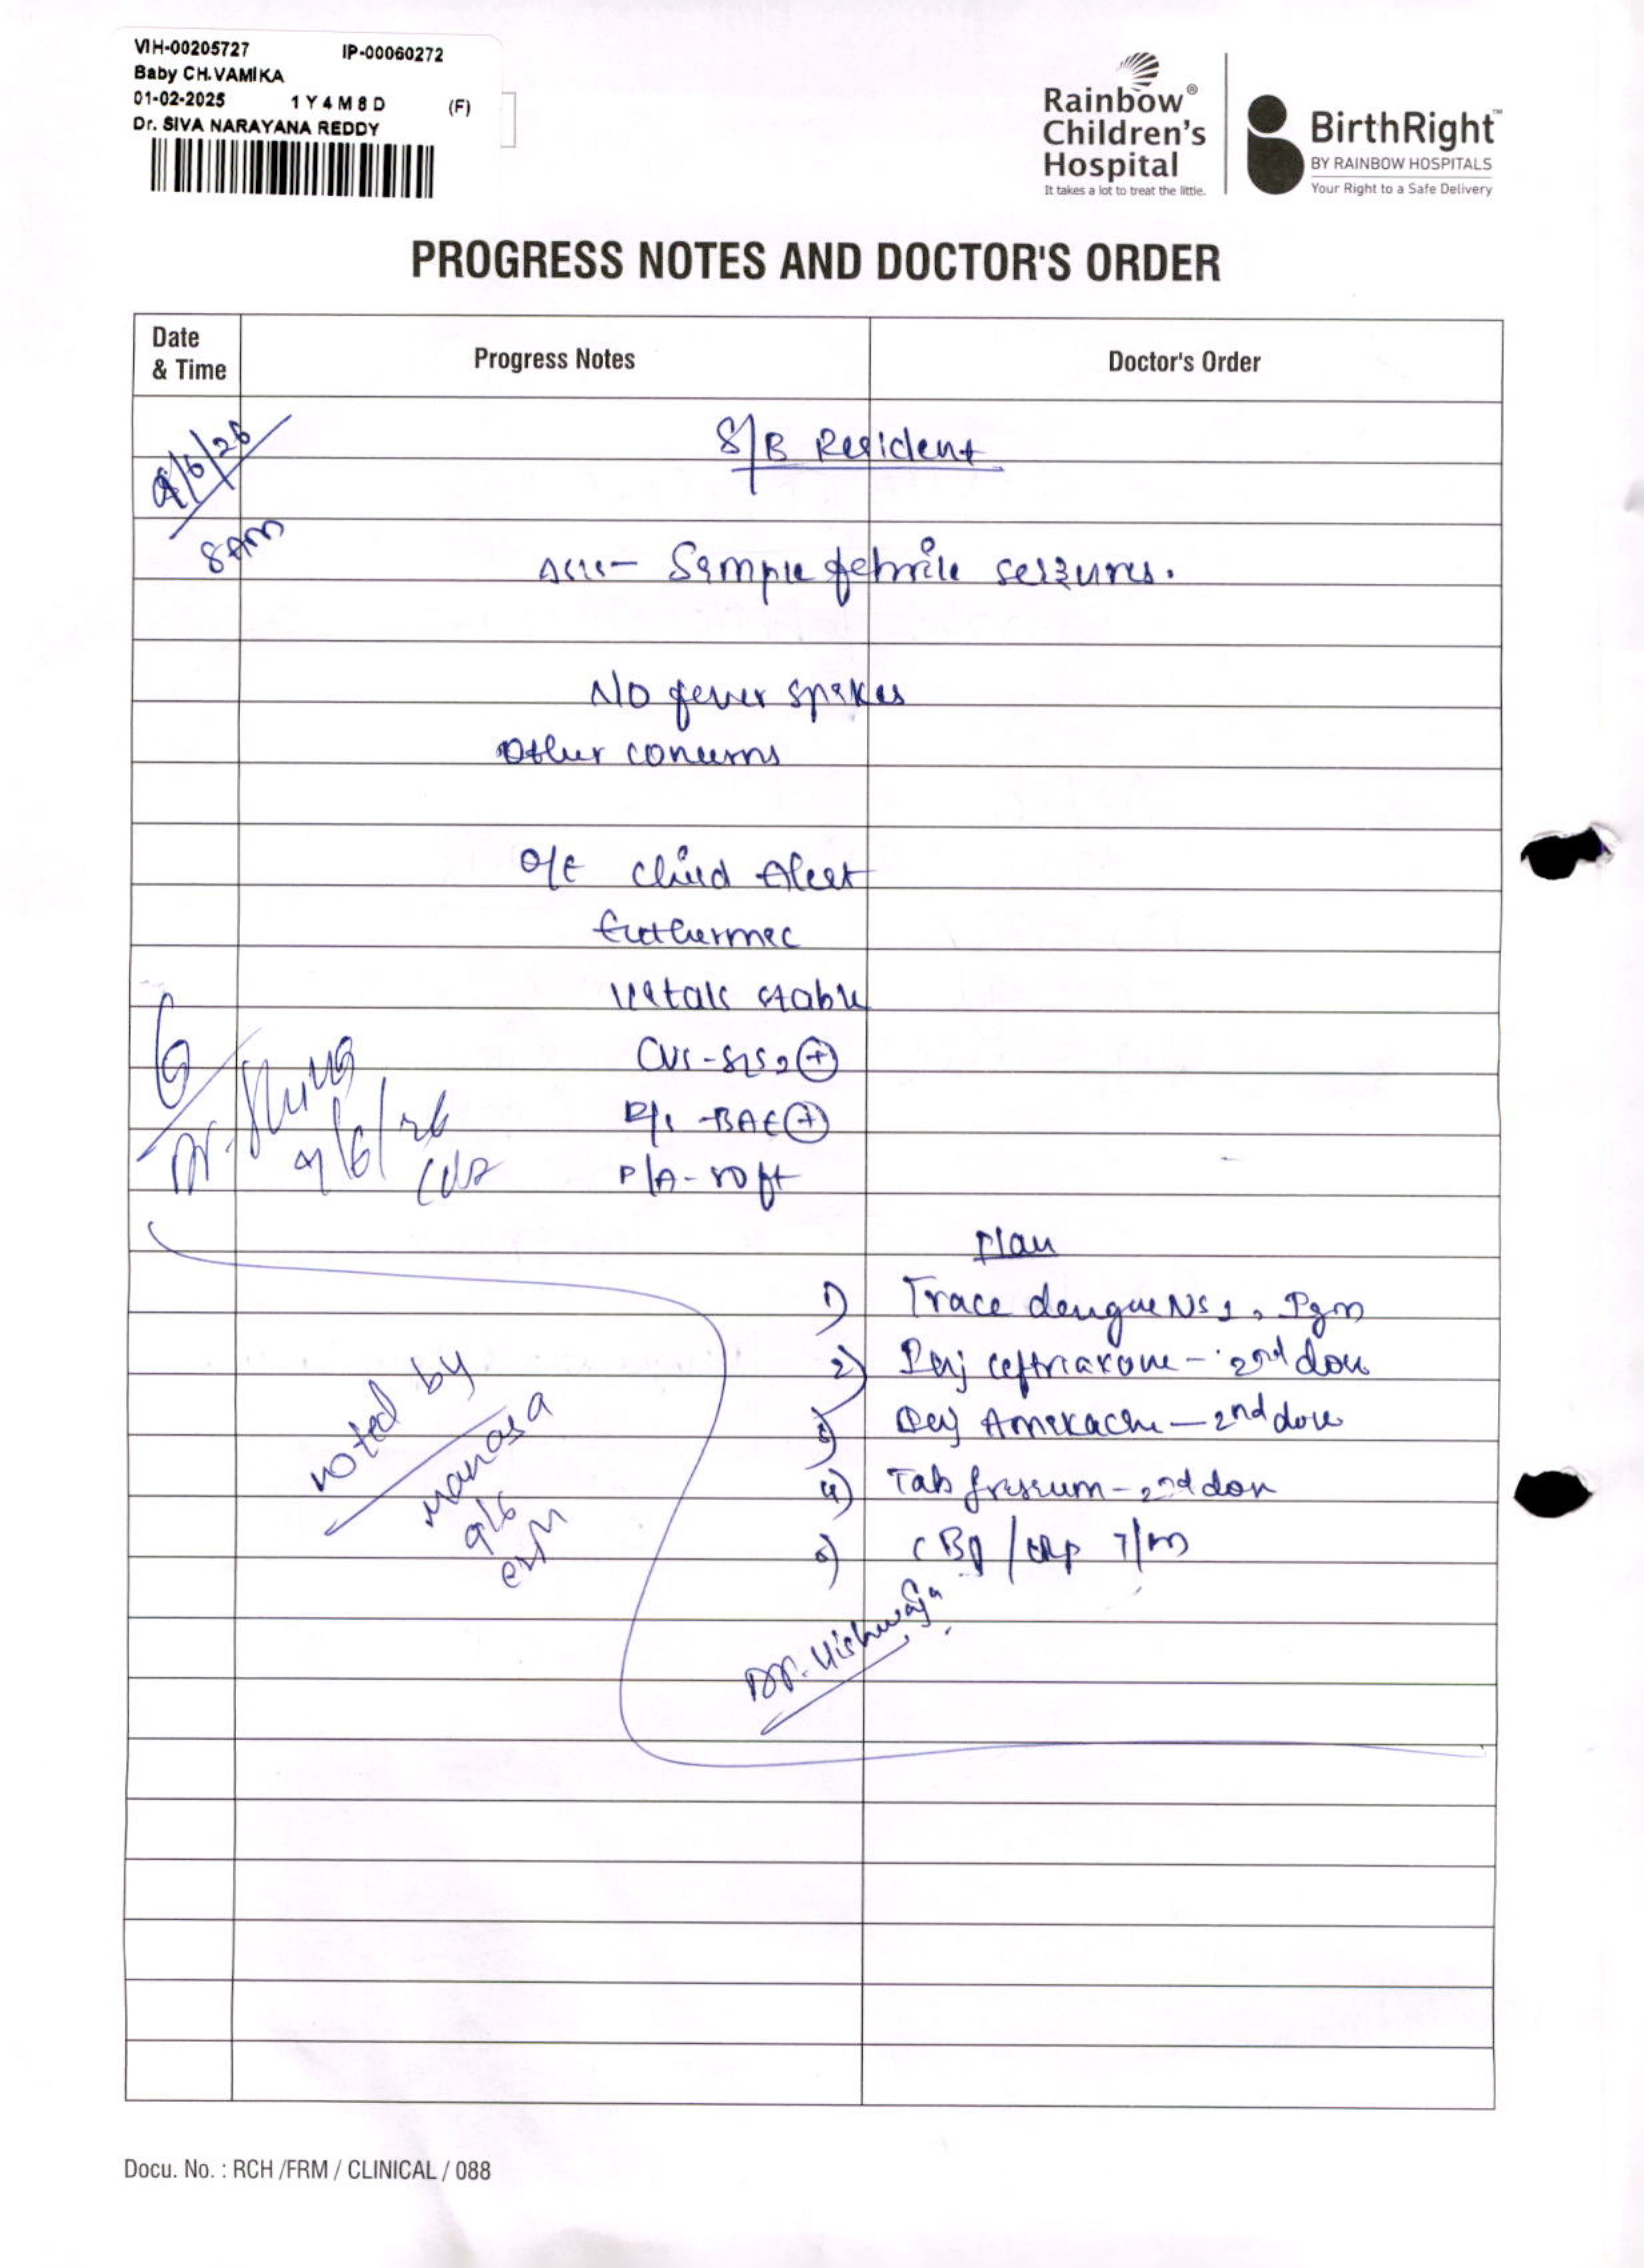 VIH-00205727 IP-00060272
Baby CH.VAMIKA
01-02-2025 1Y4M8D (F)
Dr. SIVA NARAYANA REDDY
Rainbow®
Children's
Hospital
It takes a lot to treat the little.
BirthRight™
BY RAINBOW HOSPITALS
Your Right to a Safe Delivery
PROGRESS NOTES AND DOCTOR'S ORDER
Date
& Time
Progress Notes
Doctor's Order
9/6/26
8AM
S/B Resident
Simple febrile seizures.
No fever spikes
Other concerns
O/E Child Alert
Euthermic
Vitals stable
CVS - S1S2 (+)
R/S - BAE (+)
P/A - soft
Dr.
9/6/26
Plan
1) Trace dengue NS1, IgM
2) Inj ceftriaxone - 2nd dose
3) Inj Amikacin - 2nd dose
4) Tab frisium - 2nd dose
5) CBP / CRP T/M
noted by
Manasa
9/6
Dr. Vishwaja
Docu. No. : RCH /FRM / CLINICAL / 088